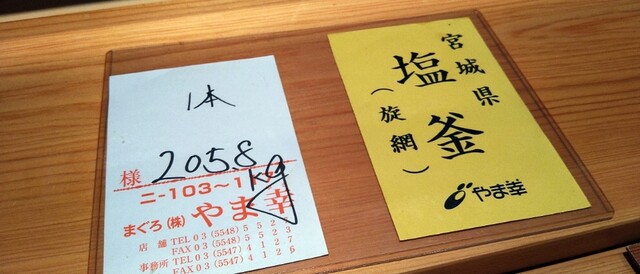 1本
2058kg
様
ニ-103~1
まぐろ(株) やま幸
店舗 TEL 03 (5548) 5 5 2
FAX 03 (5548) 5 5 2 3
事務所 TEL 03 (5547) 4 1 2 7
FAX 03 (5547) 4 1 2 6
宮城県
塩釜
(旋網)
やま幸